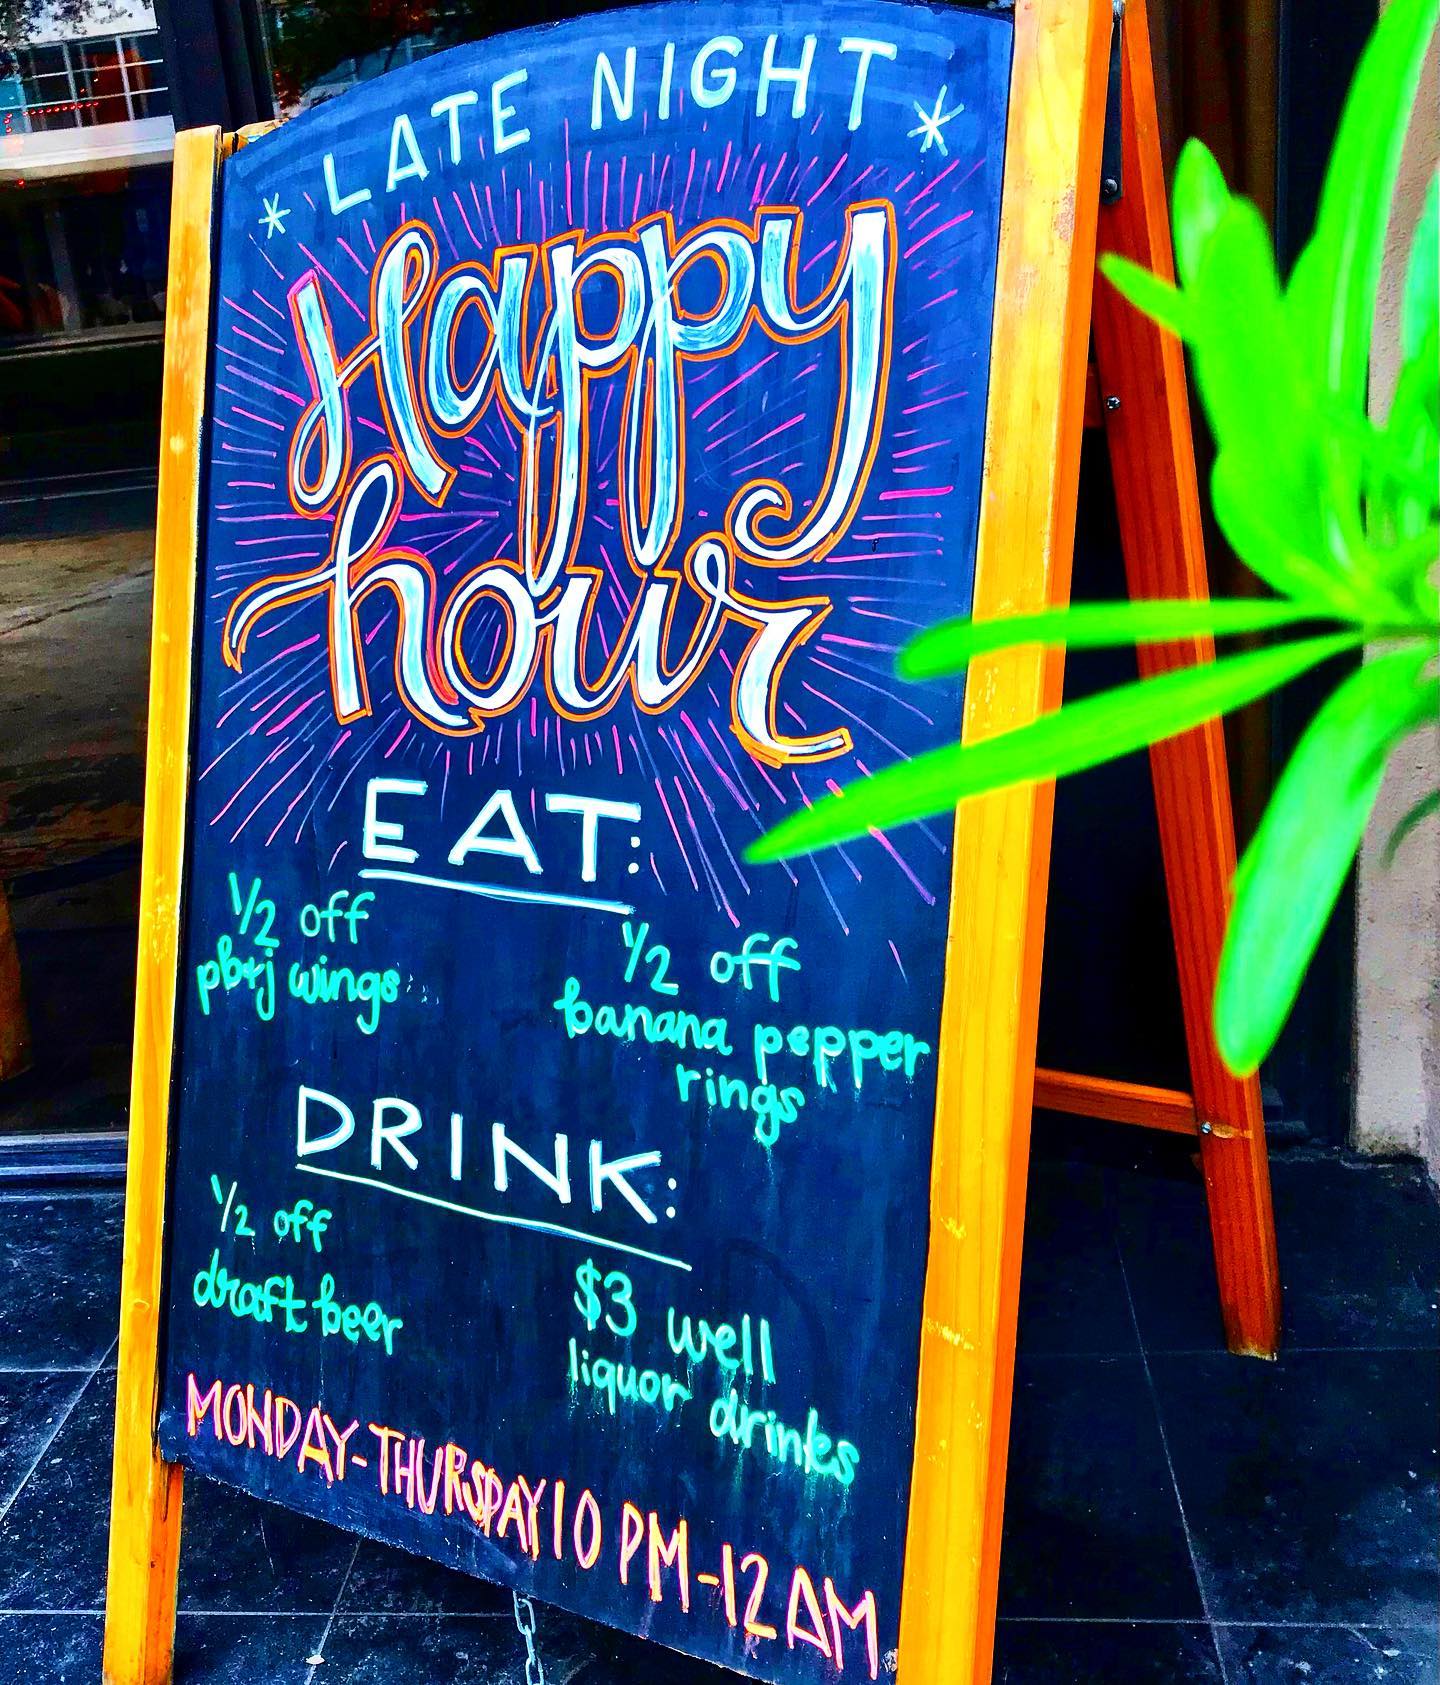 * LATE NIGHT *
Happy
hour
EAT:
1/2 off
pb+j wings
1/2 off
banana pepper
rings
DRINK:
1/2 off
draft beer
$3 well
liquor drinks
MONDAY-THURSDAY 10 PM-12AM